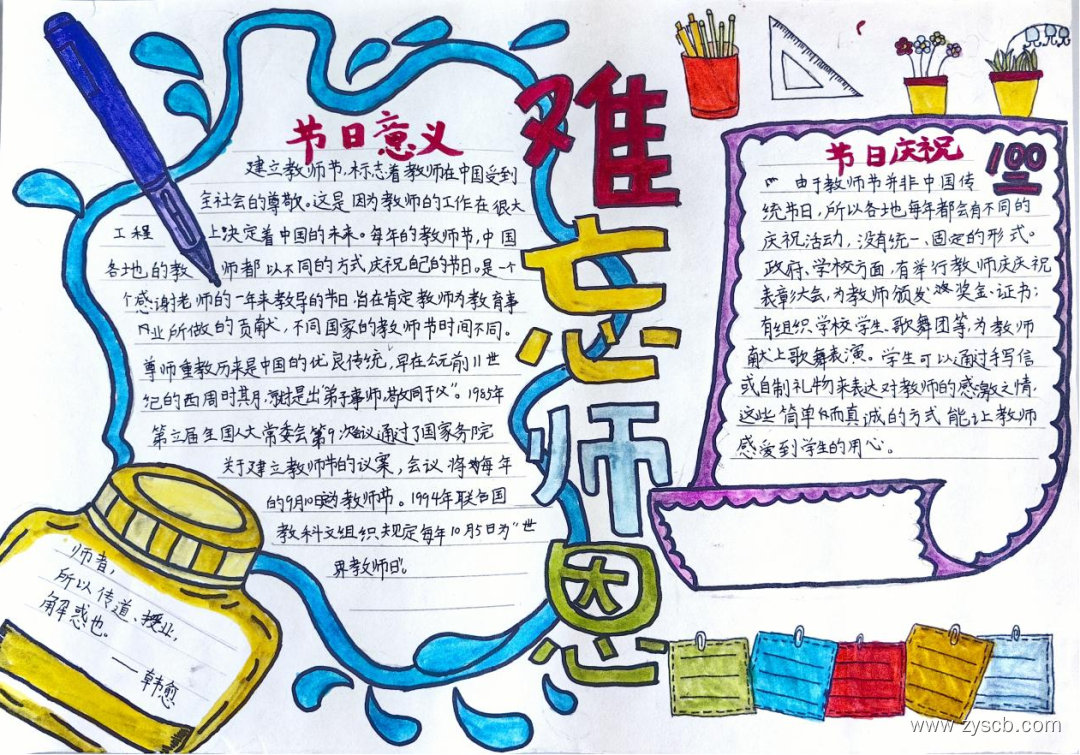 节日意义
建立教师节，标志着教师在中国受到
全社会的尊敬。这是因为教师的工作在很大
工程 上决定着中国的未来。每年的教师节，中国
各地的教师都以不同的方式庆祝自己的节日。是一个
个感谢老师的一年来教导的节日旨在肯定教师为教育事
业所做的贡献，不同国家的教师节时间不同。
尊师重教历来是中国的优良传统，早在公元前11世
纪的西周时其月，就提出"弟子事师，敬同于父"。1985年
第 届全国人大常委会第9次会议通过了国家务院
关于建立教师节的议案，会议将每年
的9月10日 为教师节。1994年联合国
教科文组织规定每年10月5日为"世
界教师日"。
难忘师恩
节日庆祝
100
由于教师节并非中国传
统节日，所以各地每年都会有不同的
庆祝活动，没有统一、固定的形式。
政府、学校方面，有举行教师庆庆祝
表彰大会，为教师颁发 奖金、证书；
有组织学校学生、歌舞团等，为教师
献上歌舞表演。学生可以通过手写信
或自制礼物来表达对教师的感激之情，
这些简单而真诚的方式能让教师
感爱到学生的用心。
师者，
所以传道、授业，
解惑也。
——韩愈
www.zyscb.com